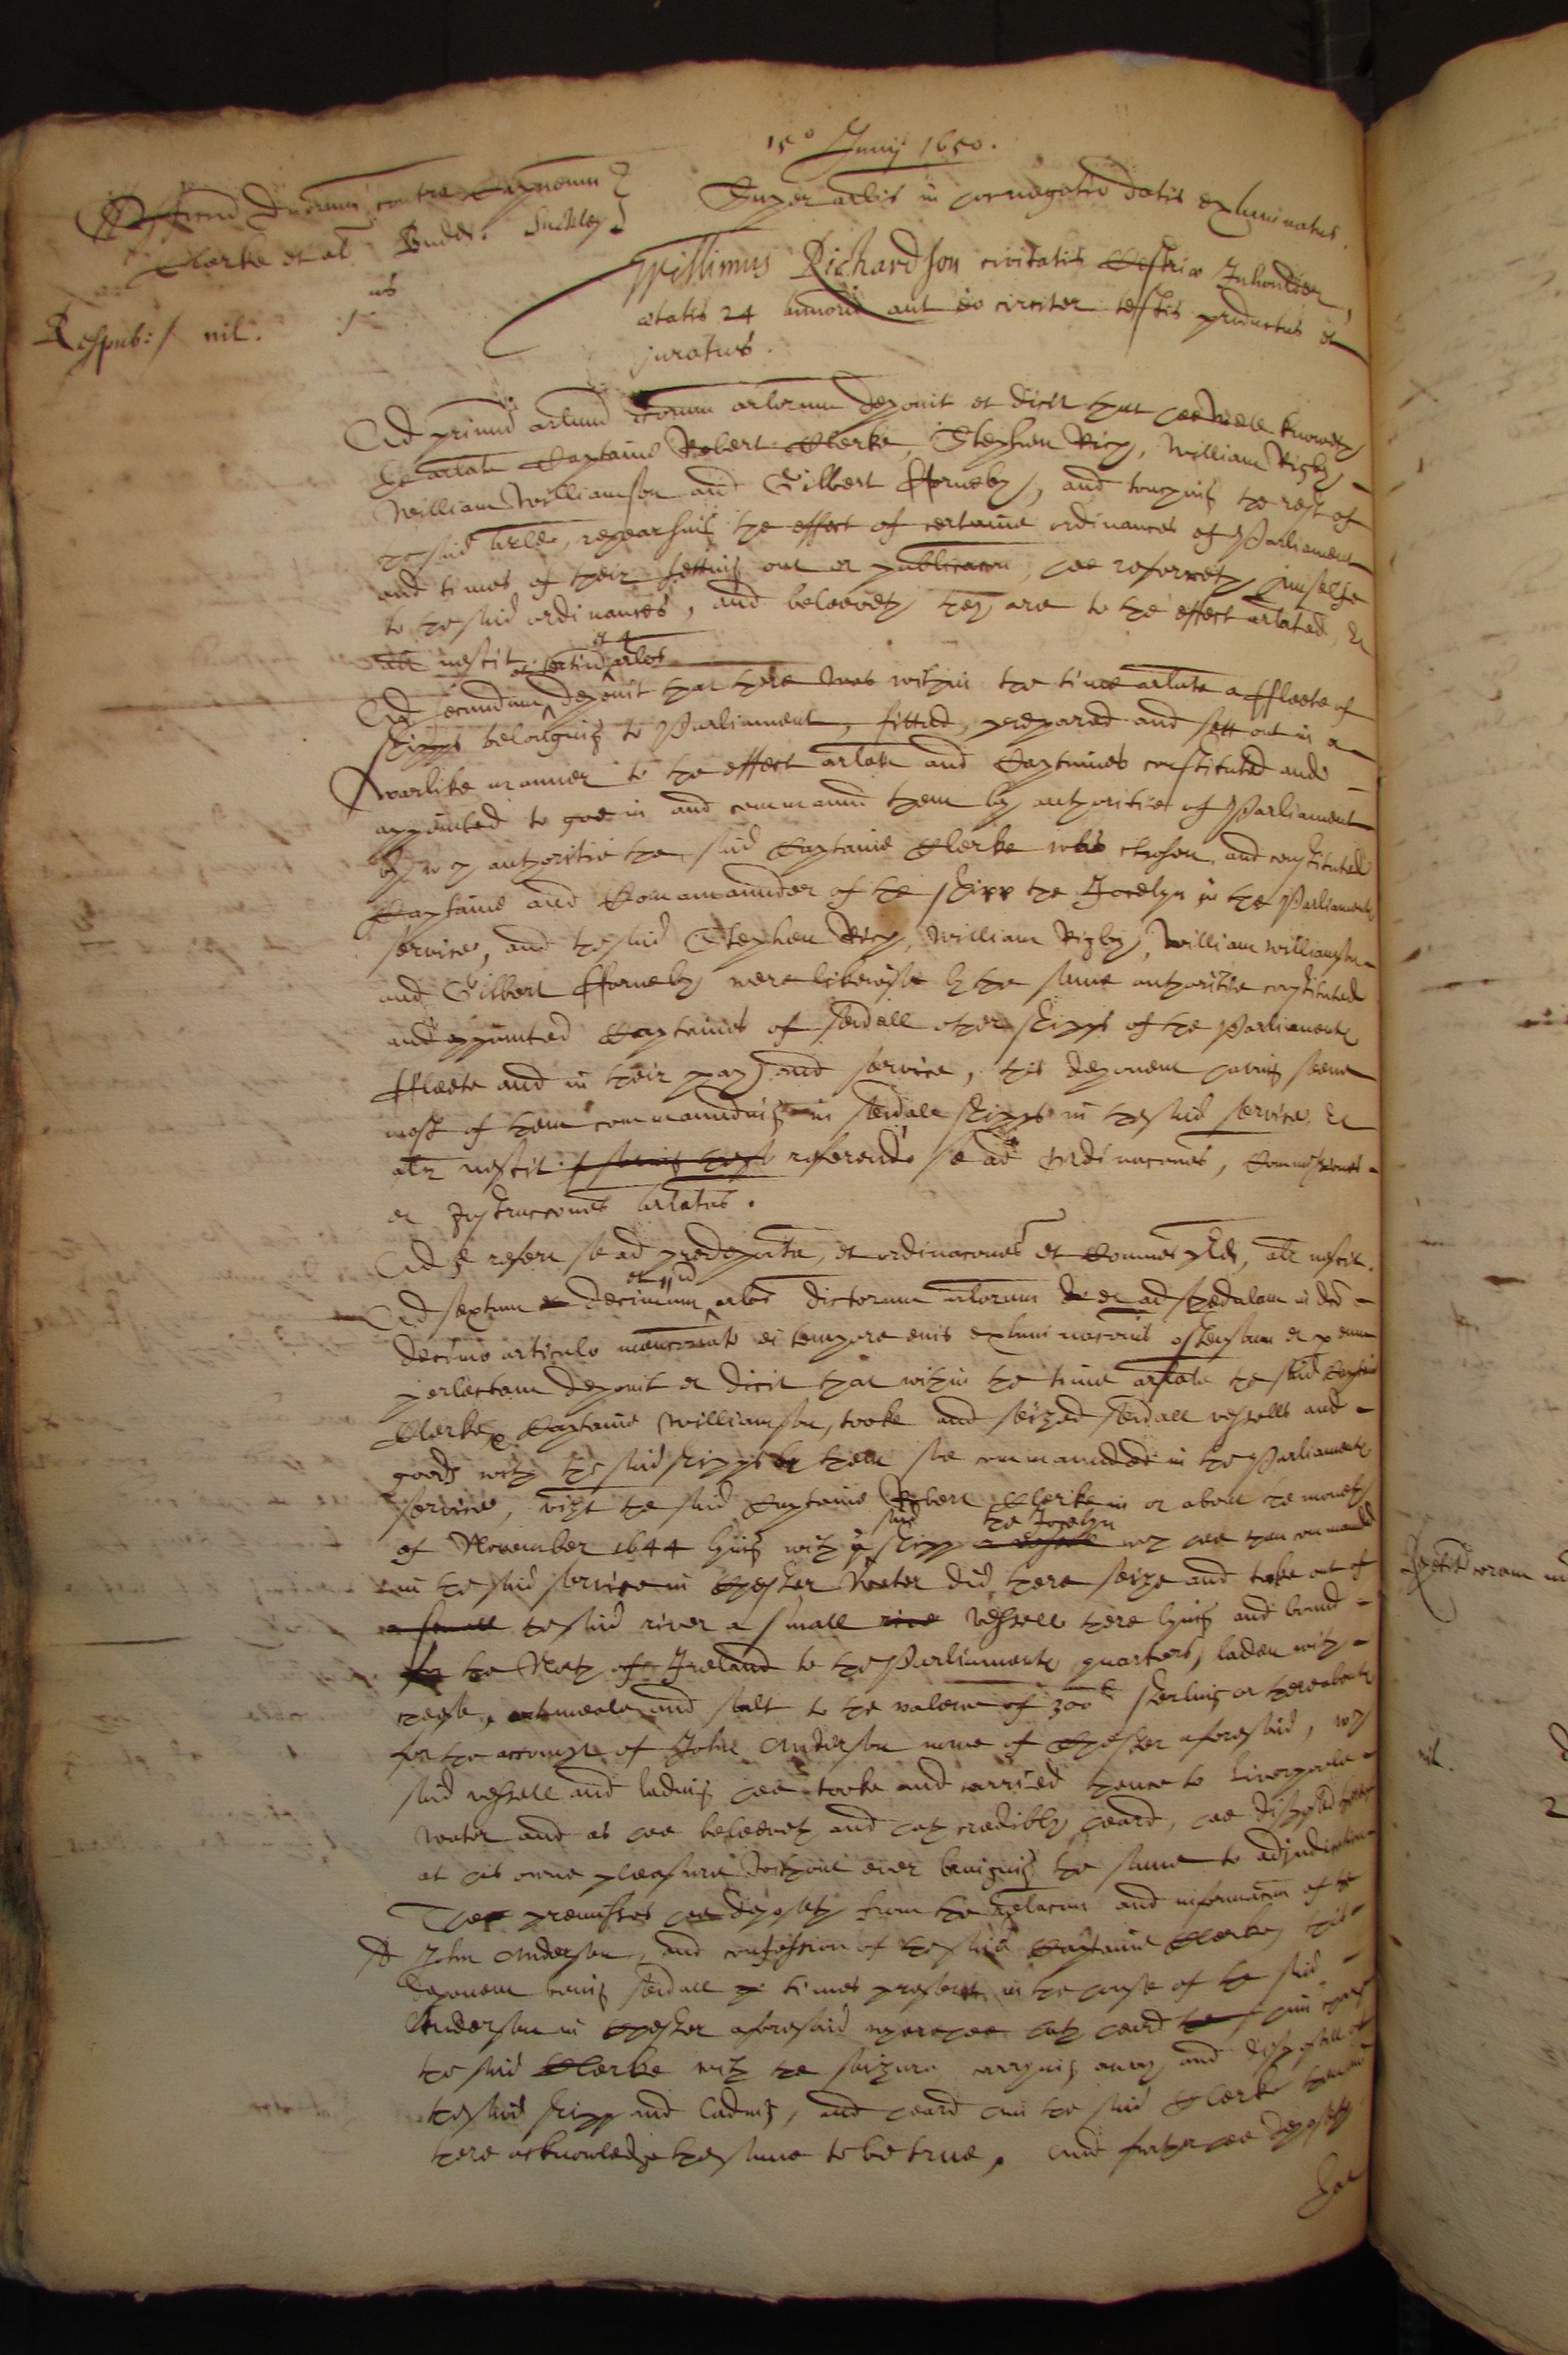 15o Junij 1650.
Officium Dnorum contra Capneum
Clarke et al Budd. Suckley
Super allis in prerogativo datis examinatus.
Respub: / nil.
Willimus Richardson civitatis Cestriæ Inholder
ætatis 24 annorũ aut eo circiter testis productus et
juratus.
Ad primũ arlum dcorum arlorum deponit et dicit that hee well knoweth
the arlate Captaine Robert Clerke, Stephen Rich, William Rigby
William Williamson and Gilbert fforneby, and touching the rest of
the said arle, rehearsing the effect of certaine ordinances of Parliament
and times of their setting out or publicacon, hee referreth himselfe
to the said ordinances, and beleeveth they are to the effect arlated, Et
alr nescit
Ad secundum et tertiũ et 4 arlos deponit that there was within the time arlate a ffleete of
shipps belonging to Parliament, fitted, prepared and sett out in a
warlike manner to the effect arlate and Captaines constituted and
appointed to goe in and command them by authoritie of Parliament
by wch authoritie the said Captaine Clerke was chosen and constituted
Captaine and Comamaunder of the shipp the Jocelyn in the Parliaments
service, and the said Stephen Rich, William Rigby, William Williamson
and Gilbert fforneby were likewise by the same authoritie constituted
and appointed Captaines of severall other shipps of the Parliaments
ffleete and in their pay and service, this deponent having seene
most of them commaunding in severall shipps in the said service. Et
alr nescit referendo se ad ordinacones, Commissiones
et Instruccones arlatas.
Ad 5 refert se ad predeposita, et ordinacones et Commes pred, alr nescit.
Ad sextum et decimum et 11ũ arlos dictorum arlorum et ad schedulam in dco
decimo articulo mencionat ei tempore huius examinaconis ostensam et per eum
perlectam deponit et dicit that within the time arlate the said Captaine
Clerke & Captaine Williamson, tooke and seized severall vessells and
goods with the said shipps by them soe commaunded in the Parliaments
service, vizt the said Captaine Robert Clerke in or about the moneth
of November 1644 lying with ye said shipp a vessell the Jocelyn wch hee then commanded
in the said service in Chester water did there seize and take out of
a small the said river a small rive vessell there lying and bound
for the North of Ireland to the Parliaments quarters, laden with
cheese, oatmeale and salt to the valeue of 300li sterling or thereabouts
for the accompt of John Anderson nowe of Chester aforesaid, wch
said vessell and lading hee tooke and carried thence to Liverpoole
water and as hee beleeveth and hath credibly heard, hee disposed thereof
at his owne pleasure without ever bringing the same to adjudicacon.
The premisses hee deposeth from the relacon and informacon of the
sd John Anderson, and confession of the said Captaine Clerke, this
deponent being severall times present in the house of the said
Anderson in Chester aforesaid where hee hath heard him charge
the said Clerke with the seizure carrying away and disposall of
the said shipp and lading, and heard him the said Clerke then and
there acknowledge the same to be true, And further hee deposeth
that